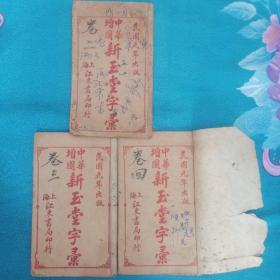 民國元年出版
中華
增圖
新玉堂字彙
上海江東書局印行
卷二
民國元年出版
中華
增圖
新玉堂字彙
上海江東書局印行
卷三
民國元年出版
中華
增圖
新玉堂字彙
上海江東書局印行
卷四